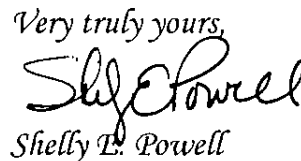 Very truly yours,
Shelly E. Powell
Shelly E. Powell